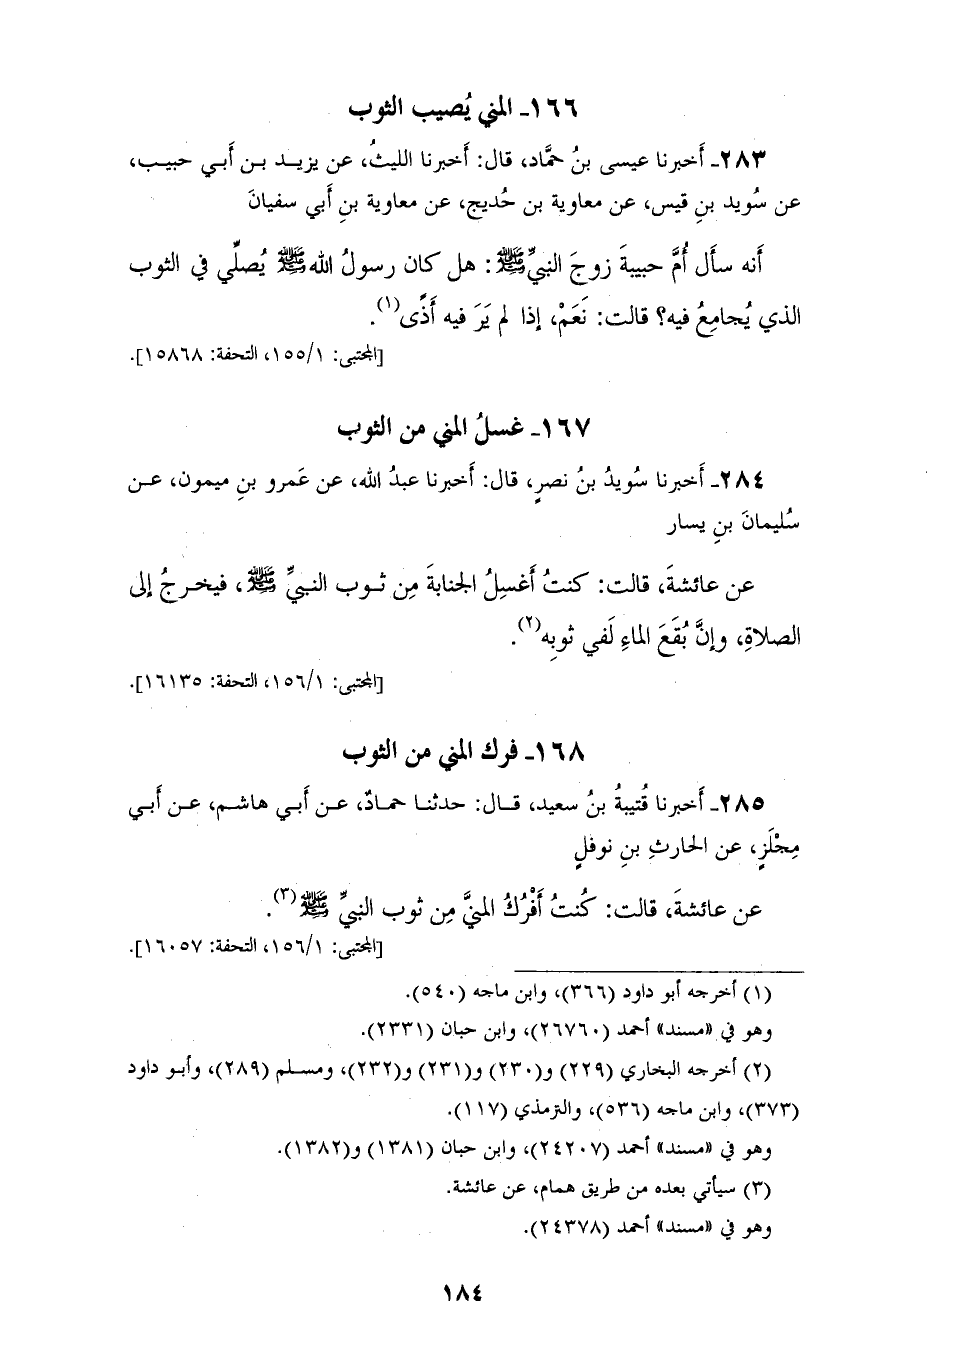 ١٦٦ـ المني يُصيب الثوب
٢٨٣ـ أَخبرنا عيسى بنُ حمَّاد، قال: أَخبرنا الليثُ، عن يزيـد بـن أَبـي حبيـب،
عن سُويد بنِ قيس، عن معاوية بن حُديج، عن معاوية بنِ أَبي سفيانَ
أَنه سأَل أُمَّ حبيبةَ زوجَ النبيِّ ﷺ: هل كان رسولُ الله ﷺ يُصلِّي في الثوب
الذي يُجامِعُ فيه؟ قالت: نَعَمْ، إذا لم يَرَ فيه أَذًى(١).
[المجتبى: ١/١٥٥، التحفة: ١٥٨٦٨].
١٦٧ـ غسلُ المني من الثوب
٢٨٤ـ أَخبرنا سُويدُ بنُ نصرٍ، قال: أَخبرنا عبدُ الله، عن عَمرو بنِ ميمون، عـن
سُليمانَ بنِ يسار
عن عائشةَ، قالت: كنتُ أَغسِلُ الجنابةَ مِن ثـوب النبيِّ ﷺ، فيخـرجُ إلى
الصلاةِ، وإنَّ بُقَعَ الماءِ لَفي ثوبِه(٢).
[المجتبى: ١/١٥٦، التحفة: ١٦١٣٥].
١٦٨ـ فرك المني من الثوب
٢٨٥ـ أَخبرنا قُتيبةُ بنُ سعيد، قـال: حدثنـا حمـادٌ، عـن أَبـي هاشـم، عـن أَبـي
مِجْلَزٍ، عن الحارثِ بنِ نوفلٍ
عن عائشةَ، قالت: كُنتُ أَفْرُكُ المنيَّ مِن ثوب النبيِّ ﷺ(٣).
[المجتبى: ١/١٥٦، التحفة: ١٦٠٥٧].
(١) أخرجه أبو داود (٣٦٦)، وابن ماجه (٥٤٠).
وهو في «مسند» أحمد (٢٦٧٦٠)، وابن حبان (٢٣٣١).
(٢) أخرجه البخاري (٢٢٩) و(٢٣٠) و(٢٣١) و(٢٣٢)، ومسلم (٢٨٩)، وأبو داود
(٣٧٣)، وابن ماجه (٥٣٦)، والترمذي (١١٧).
وهو في «مسند» أحمد (٢٤٢٠٧)، وابن حبان (١٣٨١) و(١٣٨٢).
(٣) سيأتي بعده من طريق همام، عن عائشة.
وهو في «مسند» أحمد (٢٤٣٧٨).
١٨٤